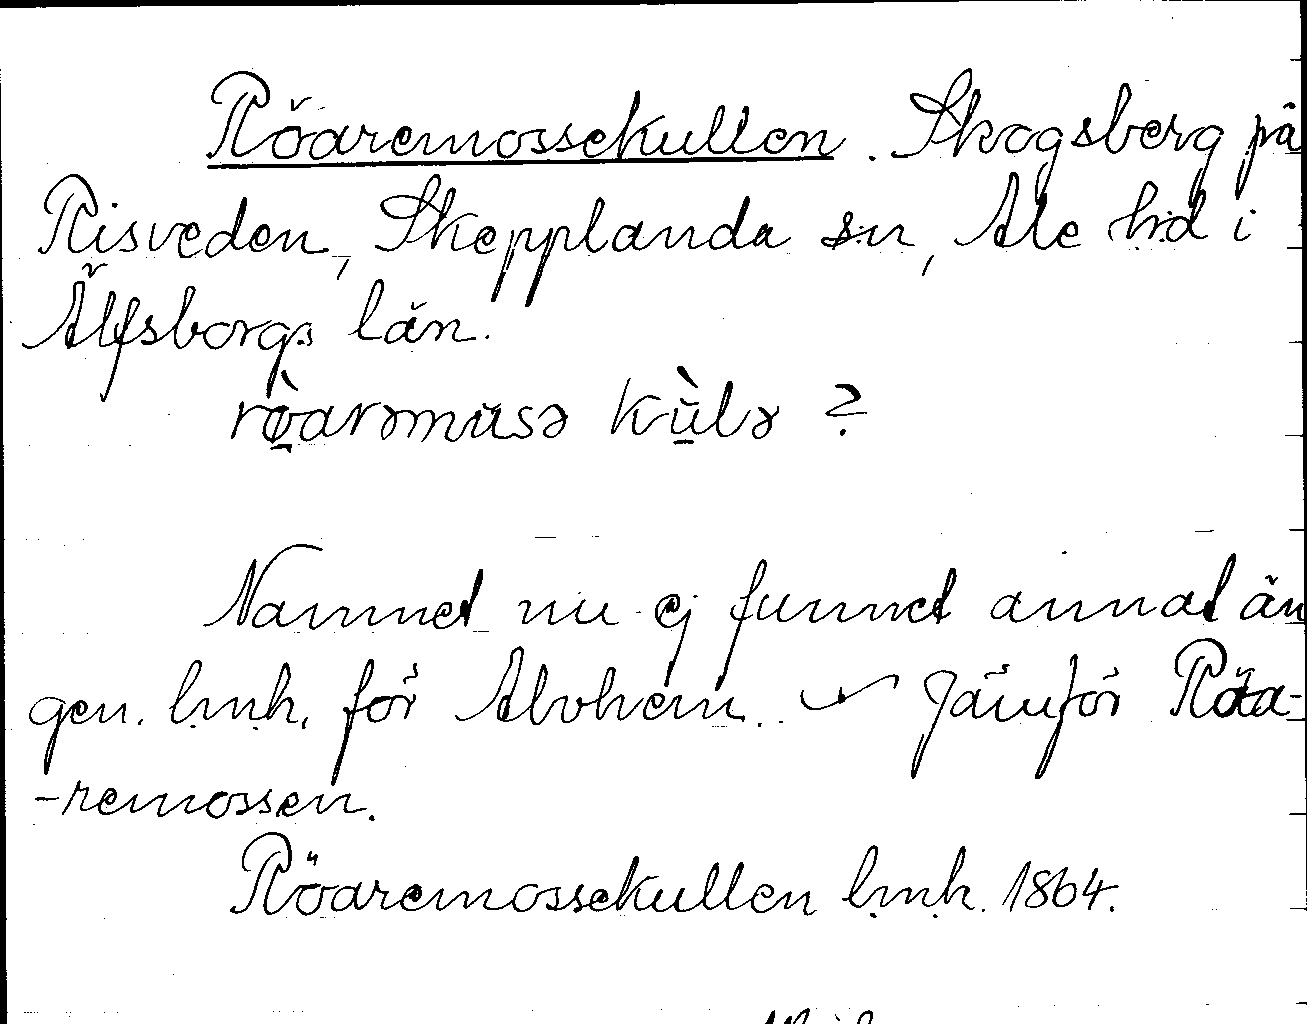 Röaremossekullen. Skogsberg på
Risveden, Skepplanda sn, Ale hd i
Älfsborgs län.
rø̀arəmusə kùlə ?
Namnet nu ej funnet annat än
gen. lmh. för Alvhem. Jämför Röa-
-remossen.
Röaremossekullen lmh. 1864.